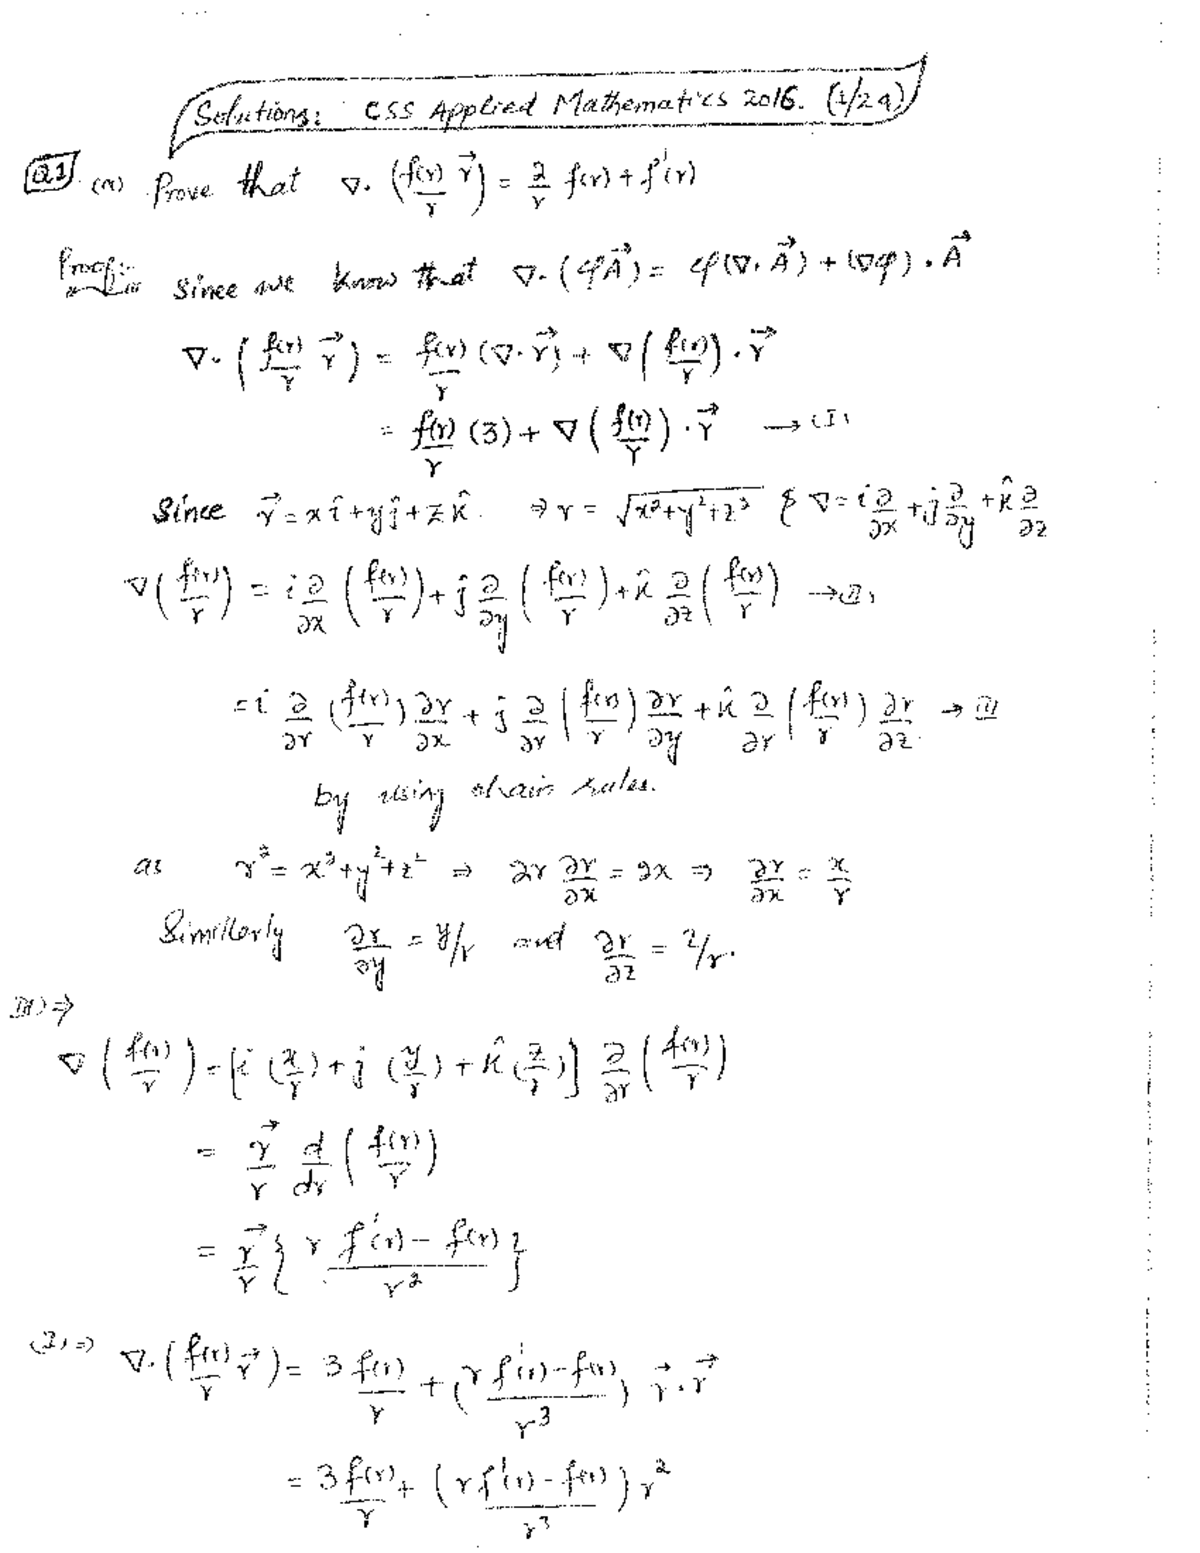 Solutions: CSS Applied Mathematics 2016. (1/24)
Q1 (a) Prove that ∇. (f(r)/r r⃗) = 2/r f(r) + f'(r)
Proof:- Since we know that ∇. (φA⃗) = φ(∇. A⃗) + (∇φ) . A⃗
∇. (f(r)/r r⃗) = f(r)/r (∇. r⃗) + ∇(f(r)/r) . r⃗
= f(r)/r (3) + ∇(f(r)/r) . r⃗ → (I)
Since r⃗ = xî + yĵ + zk̂. ⇒ r = √(x²+y²+z²) & ∇ = i ∂/∂x + j ∂/∂y + k̂ ∂/∂z
∇(f(r)/r) = i ∂/∂x (f(r)/r) + ĵ ∂/∂y (f(r)/r) + k̂ ∂/∂z (f(r)/r) → (II)
= i ∂/∂r (f(r)/r) ∂r/∂x + ĵ ∂/∂r (f(r)/r) ∂r/∂y + k̂ ∂/∂r (f(r)/r) ∂r/∂z. → (III)
by using chain rules.
as r² = x² + y² + z² ⇒ 2r ∂r/∂x = 2x ⇒ ∂r/∂x = x/r
Similarly ∂r/∂y = y/r and ∂r/∂z = z/r.
III) ⇒
∇(f(r)/r) = [i (x/r) + j (y/r) + k̂ (z/r)] ∂/∂r (f(r)/r)
= r⃗/r d/dr (f(r)/r)
= r⃗/r {(r f'(r) - f(r))/r²}
(I) ⇒ ∇. (f(r)/r r⃗) = 3 f(r)/r + {(r f'(r) - f(r))/r³} r⃗ . r⃗
= 3 f(r)/r + {(r f'(r) - f(r))/r³} r²